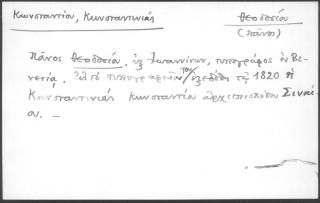 Κωνσταντίου, Κωνσταντινιάς
Θεοδοσίου
(Πάνος)
Πάνος Θεοδοσίου, ἐξ Ἰωαννίνων, τυπογράφος ἐν Βε-
νετίᾳ. τὸ τυπογραφεῖον του ἐξεδόθη τῷ 1820 ἡ
Κωνσταντινιάς Κωνσταντίου ἀρχιεπισκόπου Σιναί-
ου. —